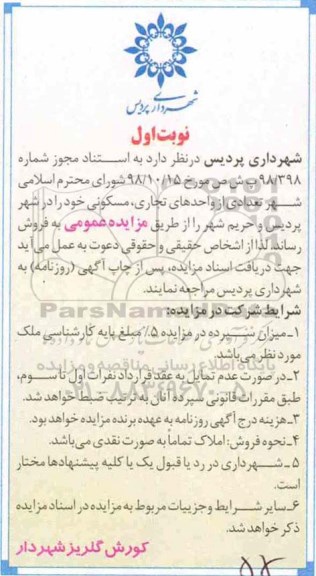 شهرداری پردیس
نوبت اول
شهرداری پردیس درنظر دارد به استناد مجوز شماره
۹۸/۳۹۸/ش مورخ ۹۸/۱۰/۱۵ شورای محترم اسلامی
شهر تعدادی از واحدهای تجاری، مسکونی خود را در شهر
پردیس و حریم شهر را از طریق مزایده عمومی به فروش
رساند. لذا از اشخاص حقیقی و حقوقی دعوت به عمل می آید
جهت دریافت اسناد مزایده، پس از چاپ آگهی (روزنامه) به
شهرداری پردیس مراجعه نمایند.
شرایط شرکت در مزایده:
۱ـ میزان سپرده در مزایده ۵٪ مبلغ پایه کارشناسی ملک
مورد نظر می‌باشد.
۲ـ در صورت عدم تمایل به عقد قرارداد نفرات اول تا سوم،
طبق مقررات قانونی سپرده آنان به ترتیب ضبط خواهد شد.
۳ـ هزینه درج آگهی روزنامه به عهده برنده مزایده خواهد بود.
۴ـ نحوه فروش: املاک تماماً به صورت نقدی می‌باشد.
۵ ـ شهرداری در رد یا قبول یک یا کلیه پیشنهادها مختار
است.
۶ـ سایر شرایط و جزییات مربوط به مزایده در اسناد مزایده
ذکر خواهد شد.
کورش گلریز شهردار